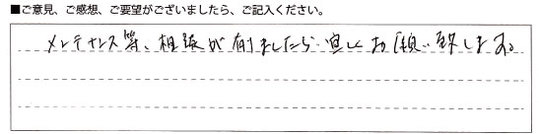 ■ご意見、ご感想、ご要望がございましたら、ご記入ください。
メンテナンス等、相談が有りましたら宜しくお願い致します。